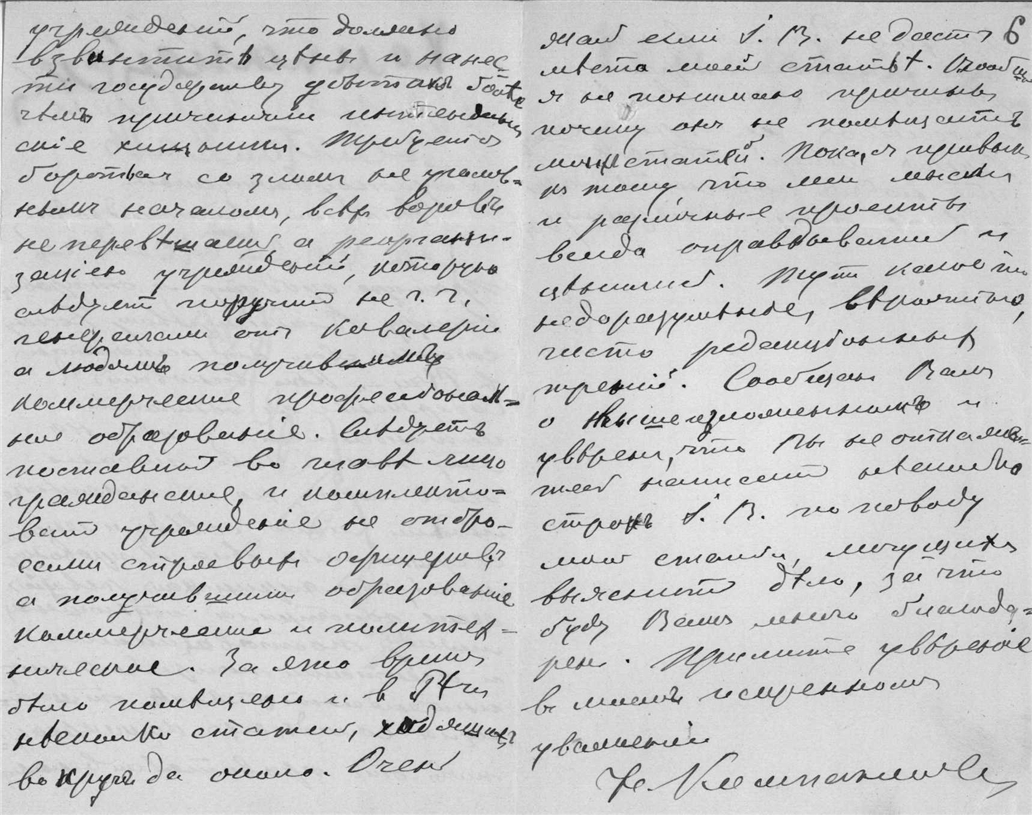 учрежденій, что должно
взвинтить цены и нанес
ти государству убытокъ более
чемъ причинили интендант
скіе хищники. Требуется
бороться со зломъ не
нымъ началомъ, всехъ воровъ
не перевешаешь а реоргани-
заціею учрежденій, которую
следуетъ поручить не г. г.
генераламъ отъ кавалеріи
а людямъ получившимъ
коммерческое профессіональ=
ное образованіе. Следуетъ
поставить во главе лицо
гражданское, и комплекто=
вать учрежденіе не отбро-
сами строевыхъ офицеровъ
а получившими образованіе
коммерческое и политех-
ническое. За это время
было помещено и в Речи
несколько статей, ходящихъ
вокругъ да около. Очень
6
жаль если І. В. не дастъ
места моей статье. Вообще
я не понимаю причины
почему онъ не помещаетъ
моихъ статей. Пока, я привыкъ
къ тому что мои мысли
и различные проекты
всегда оправдывались и
ценились. Тутъ какое то
недоразуменіе, вероятно,
чисто редакціонныхъ
треній. Сообщаю Вамъ
о вышеизложенномъ и
уверенъ, что Вы не откаже-
тесь написать несколько
строкъ І. В. по поводу
моей статьи, могущихъ
выяснить дело, за что
буду Вамъ много благода=
ренъ. Примите увереніе
в моемъ искреннемъ
уваженіи